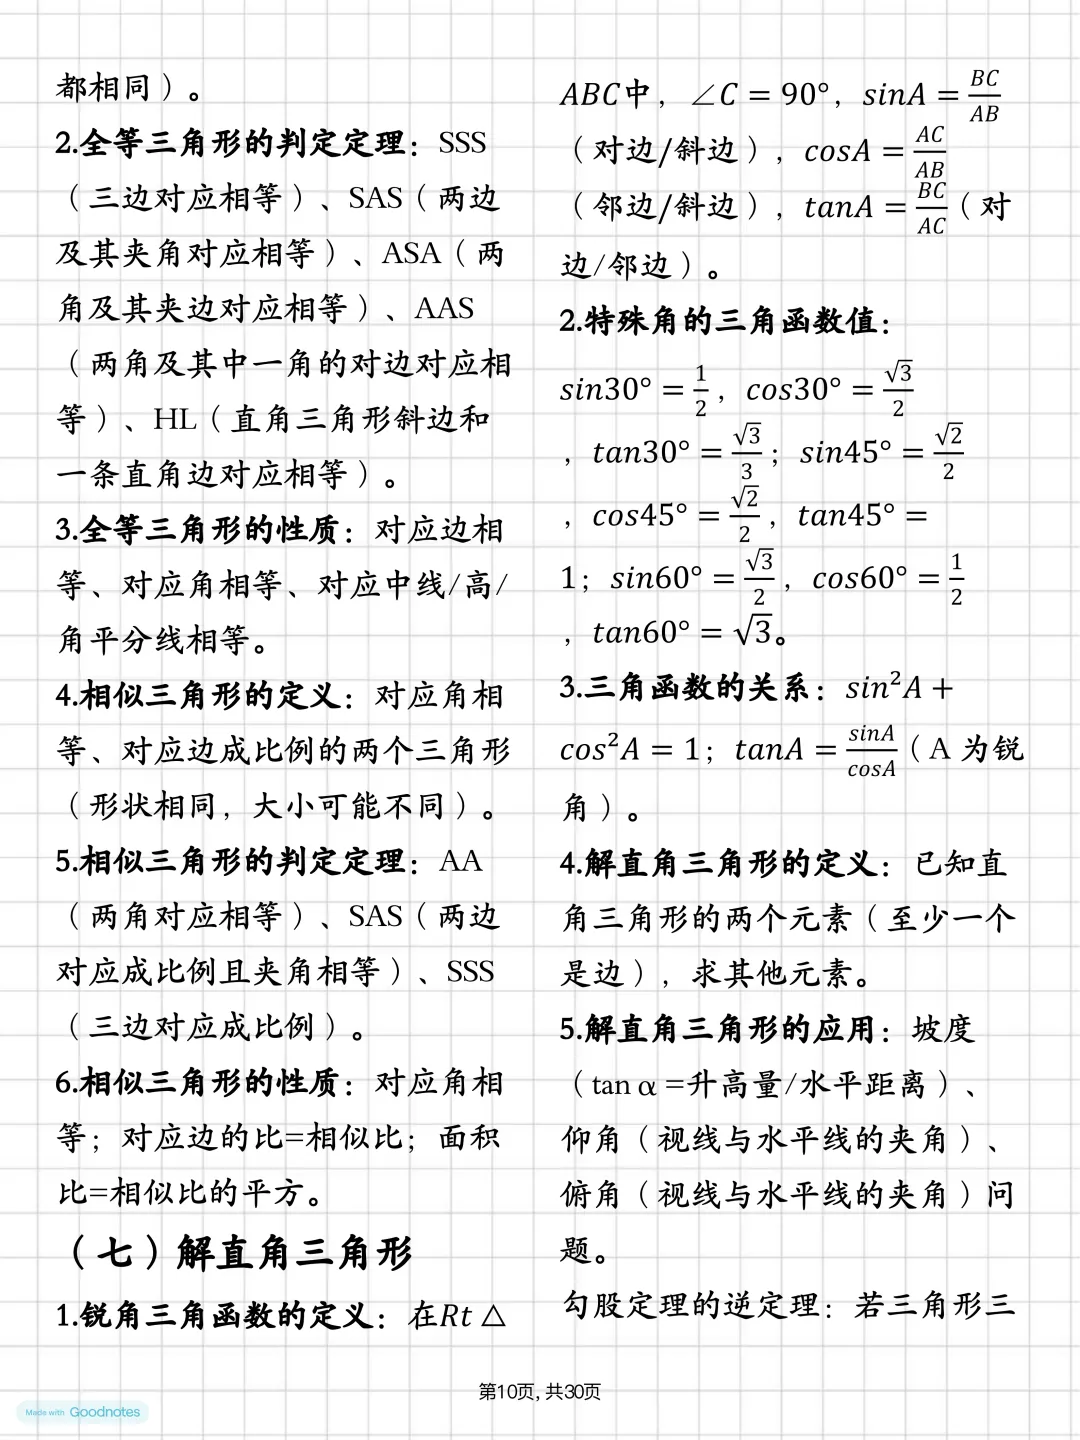 都相同）。
2.全等三角形的判定定理：SSS
（三边对应相等）、SAS（两边
及其夹角对应相等）、ASA（两
角及其夹边对应相等）、AAS
（两角及其中一角的对边对应相
等）、HL（直角三角形斜边和
一条直角边对应相等）。
3.全等三角形的性质：对应边相
等、对应角相等、对应中线/高/
角平分线相等。
4.相似三角形的定义：对应角相
等、对应边成比例的两个三角形
（形状相同，大小可能不同）。
5.相似三角形的判定定理：AA
（两角对应相等）、SAS（两边
对应成比例且夹角相等）、SSS
（三边对应成比例）。
6.相似三角形的性质：对应角相
等；对应边的比=相似比；面积
比=相似比的平方。
（七）解直角三角形
1.锐角三角函数的定义：在Rt △
ABC中，∠C = 90°，sinA = BC/AB
（对边/斜边），cosA = AC/AB
（邻边/斜边），tanA = BC/AC（对
边/邻边）。
2.特殊角的三角函数值：
sin30° = 1/2，cos30° = √3/2
，tan30° = √3/3；sin45° = √2/2
，cos45° = √2/2，tan45° =
1；sin60° = √3/2，cos60° = 1/2
，tan60° = √3。
3.三角函数的关系：sin²A +
cos²A = 1；tanA = sinA/cosA（A 为锐
角）。
4.解直角三角形的定义：已知直
角三角形的两个元素（至少一个
是边），求其他元素。
5.解直角三角形的应用：坡度
（tan α =升高量/水平距离）、
仰角（视线与水平线的夹角）、
俯角（视线与水平线的夹角）问
题。
勾股定理的逆定理：若三角形三
第10页, 共30页
Made with Goodnotes